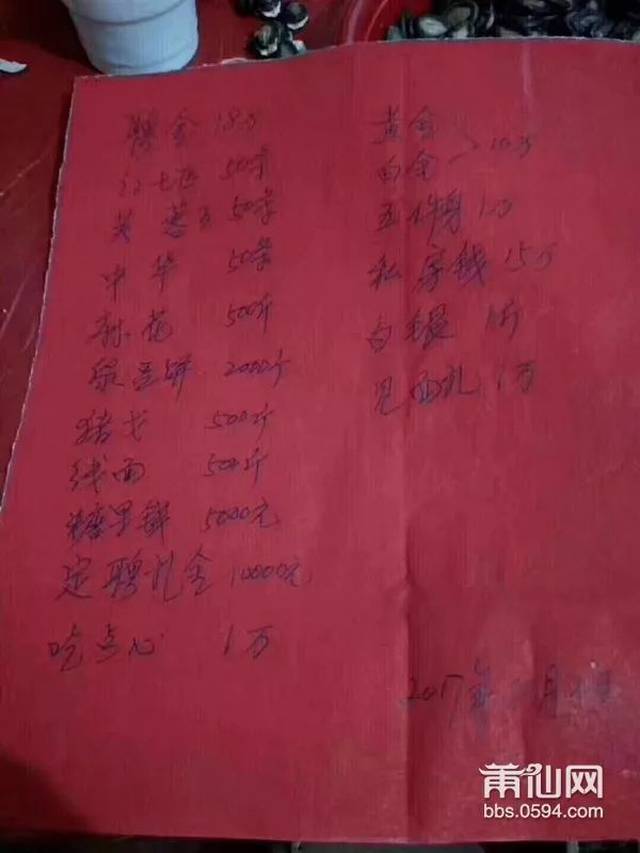 聘金 18万
红七匹 50条
芙蓉王 50条
中华 50条
麻花 500斤
绿豆饼 2000斤
猪 500斤
线面 500斤
糖果饼 5000元
定聘礼金 10000元
吃点心 1万
黄金
白金 10万
五件身 1万
私家钱 15万
白银 1斤
见面礼 1万
2017年 月
莆仙网
bbs.0594.com